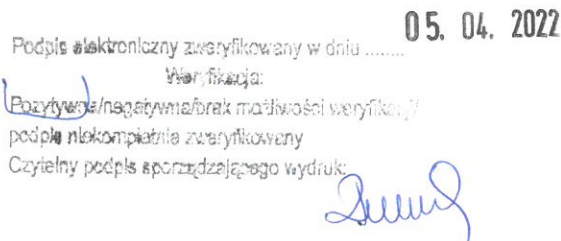 05. 04. 2022
Podpis elektroniczny zweryfikowany w dniu ........
Weryfikacja:
Pozytywna/negatywna/brak możliwości weryfikacji/
podpis niekompletnie zweryfikowany
Czytelny podpis sporządzającego wydruk: